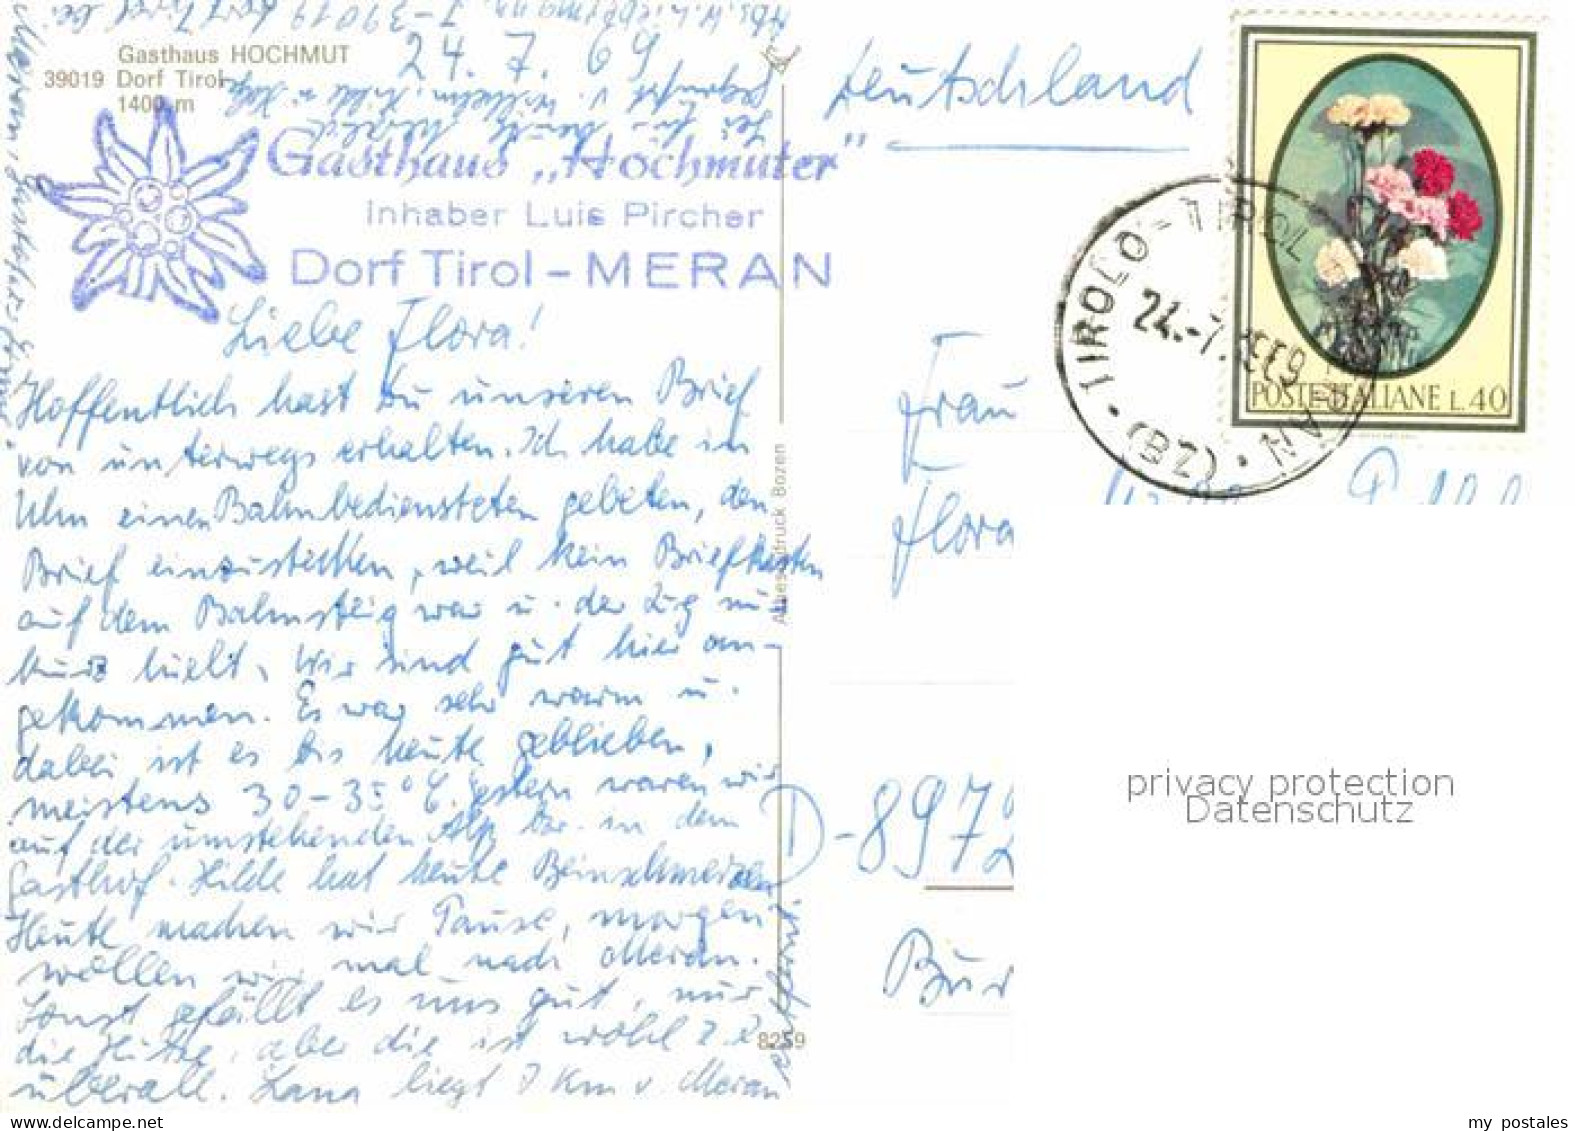 Gasthaus HOCHMUT
39019 Dorf Tirol
1400 m
24. 7. 69
Sei für heute herzl.
gegrüßt v. Wilhelm, Hilde u.
Gasthaus „Hochmuter"
Inhaber Luis Pircher
Dorf Tirol - MERAN
Liebe Flora!
Hoffentlich hast Du unseren Brief
von unterwegs erhalten. Ich habe in
Ulm einen Bahnbediensteten gebeten, den
Brief einzustecken, weil kein Briefkasten
auf dem Bahnsteig war u. der Zug nur
kurz hielt. Wir sind gut hier an-
gekommen. Es war sehr warm u.
dabei ist es bis heute geblieben,
meistens 30-35° C. Gestern waren wir
auf der umstehenden Alp bzw. in dem
Gasthof. Hilde hat heute Beinschmerzen
Heute machen wir Pause, morgen
wollen wir mal nach Meran.
Sonst gefällt es uns gut, nur
die Hitze, aber die ist wohl z. Z.
überall. Lana liegt 7 Km v. Meran
entfernt
8259
Deutschland
Frau
Flora
D-8972
Bur
POSTE ITALIANE L. 40
TIROLO - TIROL
24.-7.
(BZ)
privacy protection
Datenschutz
www.delcampe.net
my_postales